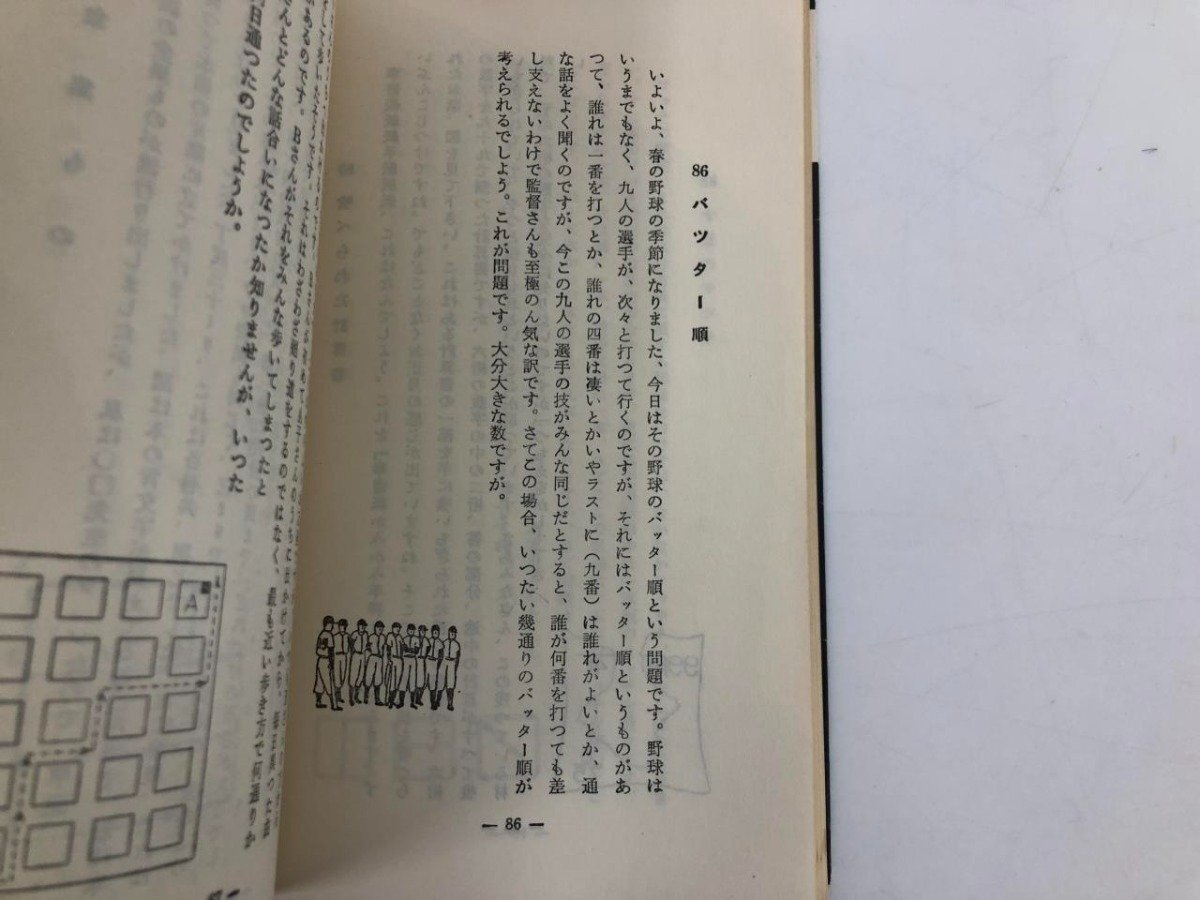 86 バツター順
いよいよ、春の野球の季節になりました、今日はその野球のバッター順という問題です。野球は
いうまでもなく、九人の選手が、次々と打つて行くのですが、それにはバッター順というものがあ
つて、誰れは一番を打つとか、誰れの四番は凄いとかいやラストに(九番)は誰れがよいとか、通
な話をよく聞くのですが、今この九人の選手の技がみんな同じだとすると、誰が何番を打つても差
し支えないわけで監督さんも至極のん気な訳です。さてこの場合、いつたい幾通りのバッター順が
考えられるでしよう。これが問題です。大分大きな数ですが。
— 86 —
があるのです。Bさんがそれをみんな歩いてしまつたと
さんとどんな話合いになつたか知りませんが、いつた
日通つたのでしようか。
それはわざわざ廻り道をするのではなく、最も近い歩き方で何通りか
A